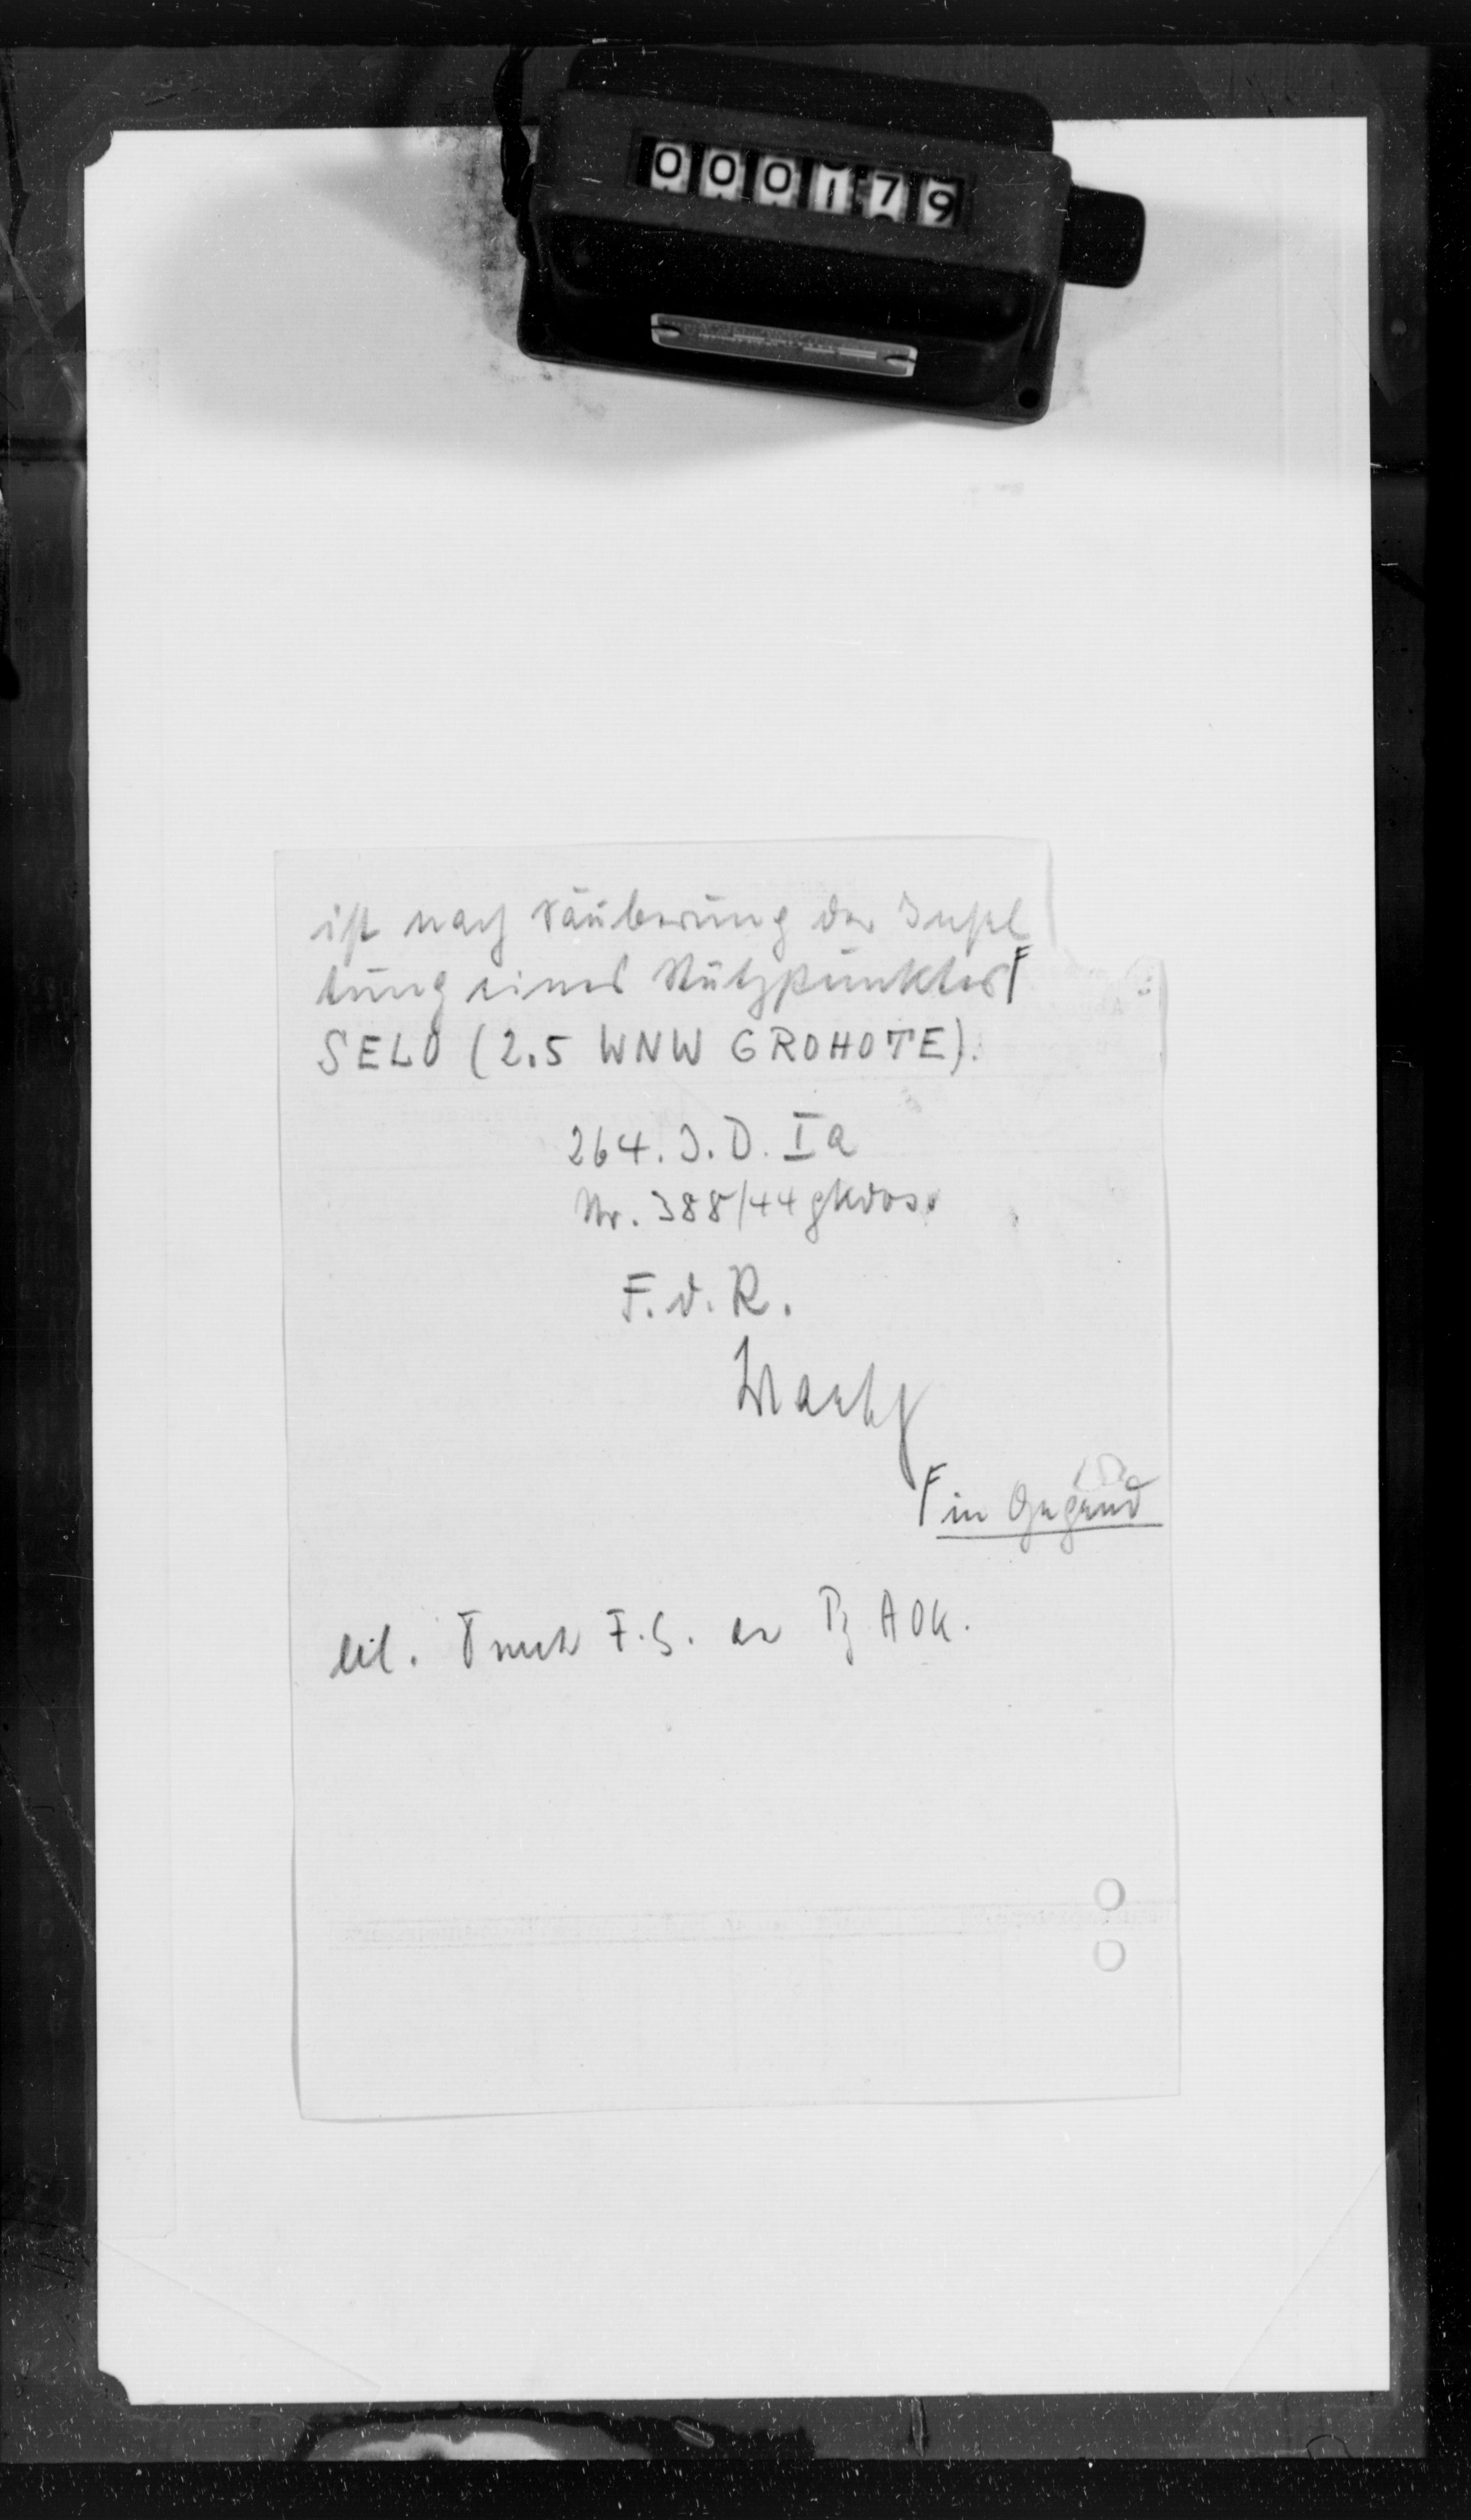 000179
ist nach Säuberung der Insel
tung eines Stützpunktes F
SELO (2.5 WNW GROHOTE).
264. J. D. Ia
Nr. 388/44 gkdos.
F. d. R.
F in Gegend
F.S. an Pz AOK.